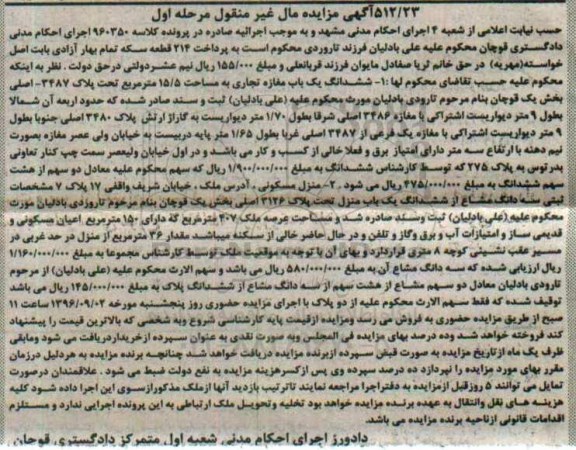 ۵۱۲/۲۳آگهی مزایده مال غیر منقول مرحله اول
حسب نیابت اعلامی از شعبه ۴ اجرای احکام مدنی مشهد و به موجب اجرائیه صادره در پرونده کلاسه ۹۶۰۳۵۰ اجرای احکام مدنی
دادگستری قوچان محکوم علیه علی بادلیان فرزند تارودی محکوم است به پرداخت ۲۱۴ قطعه سکه تمام بهار آزادی بابت اصل
خواسته(مهریه) در حق خانم ثریا صفادل مایوان فرزند قربانعلی و مبلغ ۱۵۵/۰۰۰ ریال نیم عشردولتی درحق دولت . نظر به اینکه
محکوم علیه حسب تقاضای محکوم لها :۱- ششدانگ یک باب مغازه تجاری به مساحت ۱۵/۵ مترمربع تحت پلاک ۳۴۸۷- اصلی
بخش یک قوچان بنام مرحوم تارودی بادلیان مورث محکوم علیه (علی بادلیان) ثبت و سند صادر شده که حدود اربعه آن شمالا
بطول ۹ متر دیواریست اشتراکی با مغازه ۳۴۸۶ اصلی شرقا بطول ۱/۷۰ متر دیواریست به گاراژ ارتش پلاک ۳۴۸۰ اصلی جنوبا بطول
۹ متر دیواریست اشتراکی با مغازه یک فرعی از ۳۴۸۷ اصلی غربا بطول ۱/۶۵ متر پایه دربیست به خیابان ولی عصر مغازه بصورت
نیم دهنه با ارتفاع سه متر دارای امتیاز برق و فعلا خالی از کسب و کار می باشد و در اول خیابان ولیعصر سمت چپ کنار تعاونی
بدر توس به پلاک ۲۷۵ که توسط کارشناس ششدانگ به مبلغ ۱/۹۰۰/۰۰۰/۰۰۰ ریال که سهم محکوم علیه معادل دو سهم از هشت
سهم ششدانگ به مبلغ ۴۷۵/۰۰۰/۰۰۰ ریال می شود . ۲- منزل مسکونی ، آدرس ملک ، خیابان شریف واقفی ۱۷ پلاک ۷ مشخصات
ثبتی سه دانگ مشاع از ششدانگ یک باب منزل تحت پلاک ۳۱۲۶ اصلی بخش یک قوچان بنام مرحوم تارودی بادلیان مورث
محکوم علیه (علی بادلیان) ثبت وسند صادر شده و مساحت عرصه ملک ۴۰۷ مترمربع که دارای ۱۵۰ مترمربع اعیان مسکونی و
قدیمی ساز و امتیازات آب و برق وگاز و تلفن و در حال حاضر خالی از سکنه میباشد مقدار ۳۶ مترمربع از منزل در حد غربی در
مسیر عقب نشینی کوچه ۸ متری قراردارد و بهای آن با توجه به موقعیت ملک توسط کارشناس مجموعا به مبلغ ۱/۱۶۰/۰۰۰/۰۰۰
ریال ارزیابی شده که سه دانگ مشاع آن به مبلغ ۵۸۰/۰۰۰/۰۰۰ ریال می باشد و سهم الارث محکوم علیه (علی بادلیان) از مرحوم
تارودی بادلیان معادل دو سهم مشاع از هشت سهم از سه دانگ مشاع از ششدانگ پلاک به مبلغ ۱۴۵/۰۰۰/۰۰۰ ریال می باشد
توقیف شده که فقط سهم الارث محکوم علیه از دو پلاک با اجرای مزایده حضوری روز پنجشنبه مورخه ۱۳۹۶/۰۹/۰۲ ساعت ۱۱
صبح از طریق مزایده حضوری به فروش می رسد ومزایده ازقیمت پایه کارشناسی شروع وبه شخصی که بالاترین قیمت را پیشنهاد
کند فروخته خواهد شد وده درصد بهای مزایده فی المجلس وبه صورت نقدی به عنوان سپرده ازخریداردریافت می شود ومابقی
ظرف یک ماه ازتاریخ مزایده به صورت قبض سپرده ازبرنده مزایده دریافت خواهد شد چنانچه برنده مزایده به هردلیل درزمان
مقرر بهای مورد مزایده را نپردازد ده درصد سپرده وی پس از کسرهزینه مزایده به نفع دولت ضبط می شود . علاقمندان درصورت
تمایل می توانند ۵ روزقبل ازمزایده به دفتراجرا مراجعه نمایند تاترتیب بازدید آنها ازملک مذکورازسوی این اجرا داده شود کلیه
هزینه های نقل وانتقال به عهده برنده مزایده خواهد بود تخلیه وتحویل ملک ارتباطی به این پرونده اجرایی ندارد و مستلزم
اقدامات قانونی ازناحیه برنده مزایده می باشد.
دادورز اجرای احکام مدنی شعبه اول متمرکز دادگستری قوچان